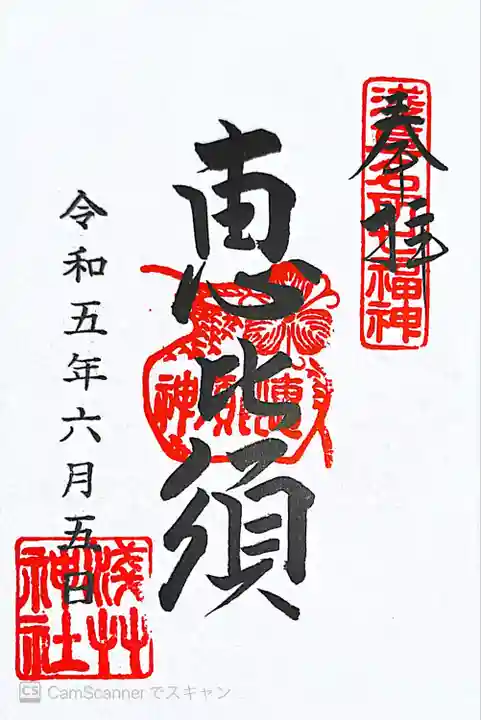 奉拝
浅草名所七福神
恵比須
令和五年六月五日
浅草
神社
CS CamScannerでスキャン